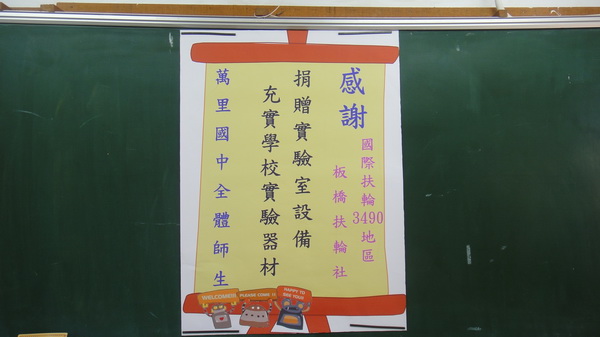 感謝
國際扶輪3490地區
板橋扶輪社
捐贈實驗室設備
充實學校實驗器材
萬里國中全體師生
WELCOME!!!
PLEASE COME IN
HAPPY TO SEE YOU!!